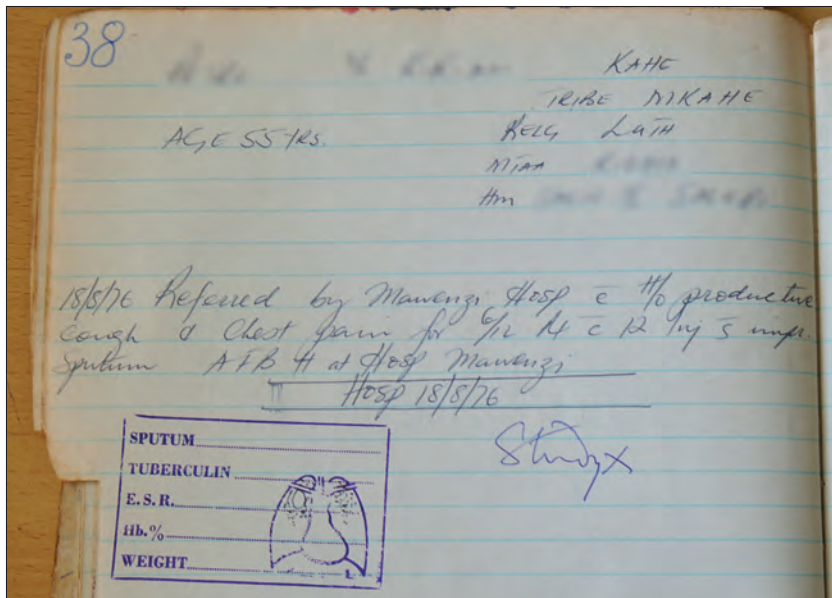 38
KAHE
TRIBE MKAHE
AGE 55 YRS.
RELG LUTH
MTAA
Hm
18/8/76 Referred by Mawenzi Hosp c̄ H/o productive
cough & Chest pain for 6/12 Rx c̄ Inj s̄ impr.
Sputum AFB # at Hosp Mawenzi
Hosp 18/8/76
SPUTUM
TUBERCULIN
E.S.R.
Hb.%
WEIGHT